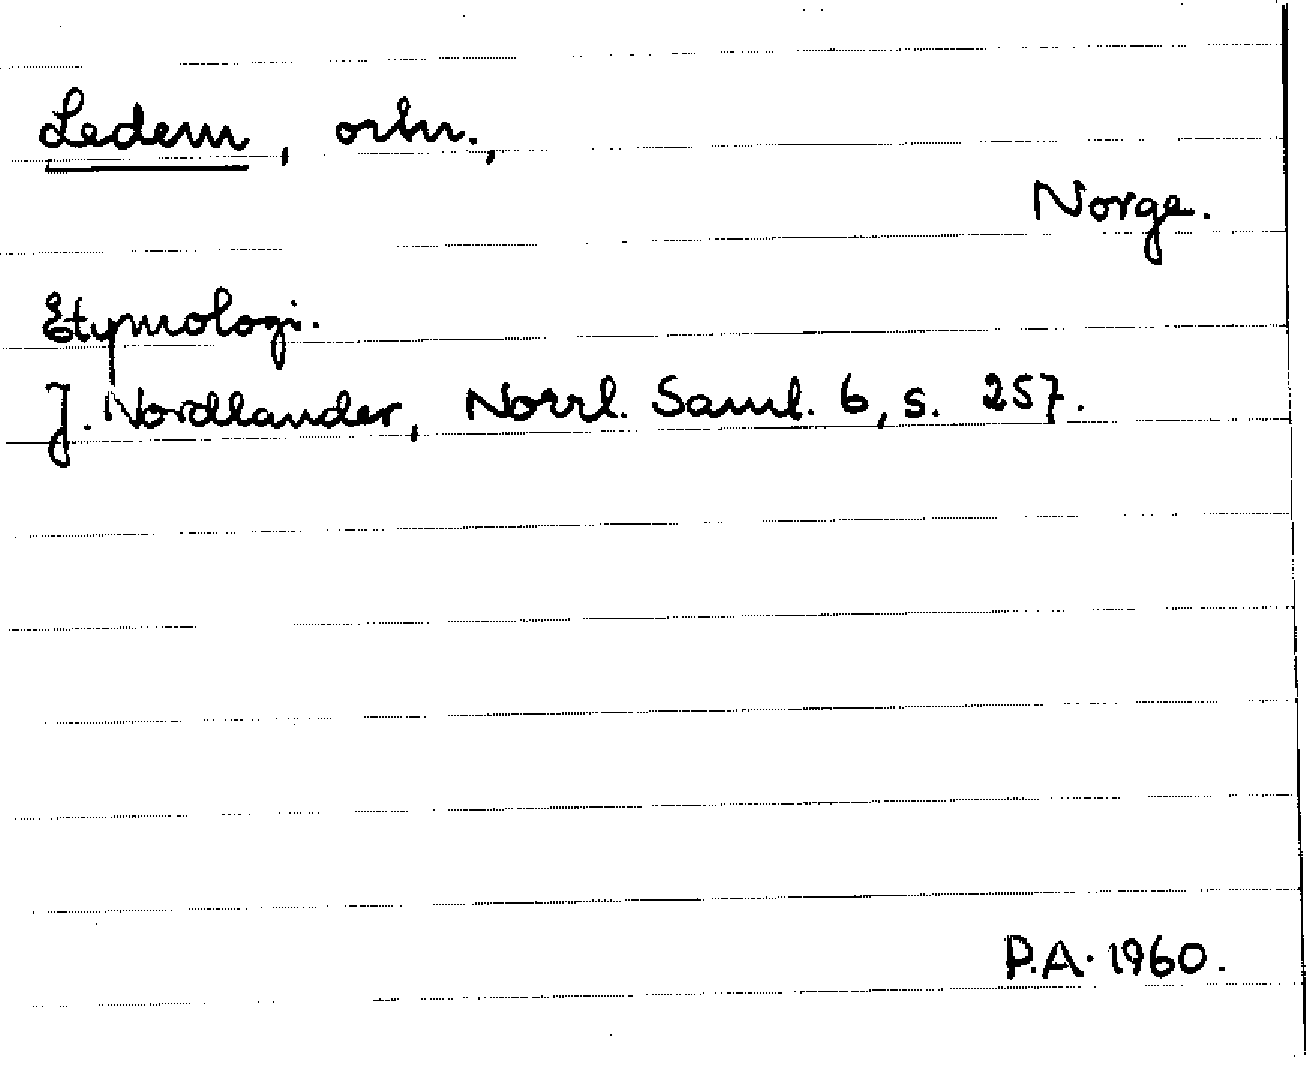 Ledem, ortn.,
Norge.
Etymologi.
J. Nordlander, Norrl. Saml. 6, s. 257.
P.A. 1960.